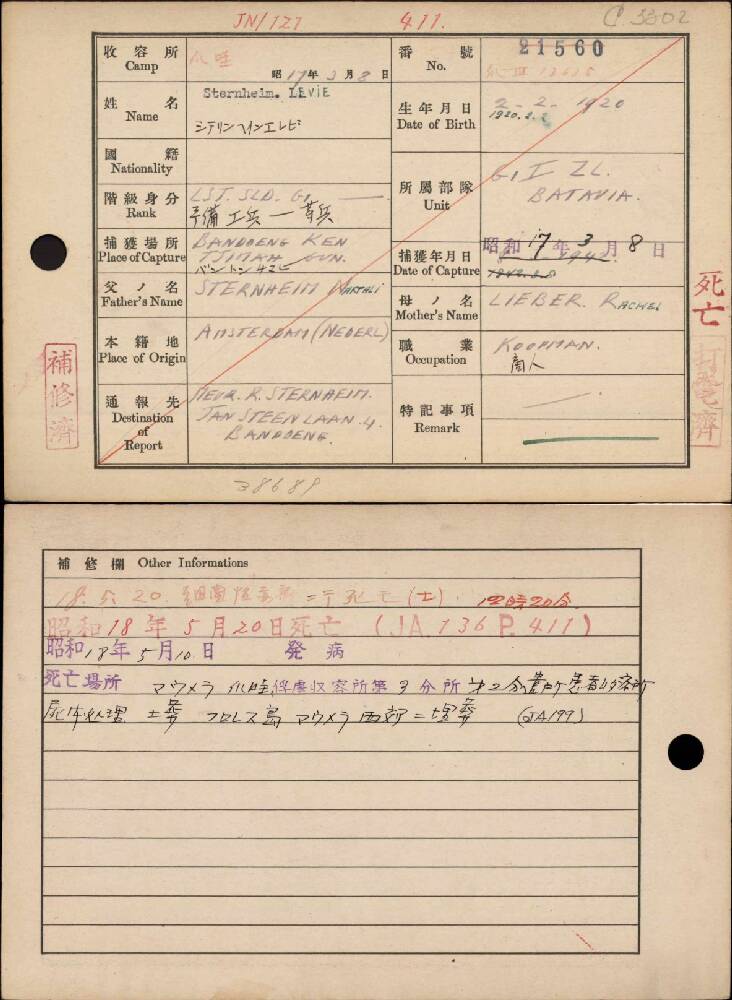 JN/121 411. C.3302
收容所 Camp 爪哇 昭17年3月8日 番號 No. 21560
姓名 Name Sternheim. LEVIE 生年月日 Date of Birth 2-2-1920
シテリンヘインエレビ 1920.2.2
國籍 Nationality
階級身分 Rank LST. SLD. G, 所属部隊 Unit G, I ZL. BATAVIA.
予備工兵一等兵
捕獲場所 Place of Capture BANDOENG KEN 捕獲年月日 Date of Capture 昭和17年3月8日
TJIMAH GUN. 1942.3.8
父ノ名 Father's Name STERNHEIM 母ノ名 Mother's Name LIEBER. RACHEL 死亡
本籍地 Place of Origin AMSTERDAM (NEDERL) 職業 Occupation KOOPMAN.
商人
補修濟 打電濟
通報先 Destination of Report MEVR. R. STERNHEIM. 特記事項 Remark
JAN STEEN LAAN. 4.
BANDOENG.
38689
補修欄 Other Informations
18. 5. 20. 細菌性赤痢ニテ死亡(士) 12時20分
昭和18年5月20日死亡 (JA.136 P.411)
昭和18年5月10日 発病
死亡場所 マウメラ 爪哇俘虜収容所第3分所 患者収容所
死体処理 土葬 フロレス島 マウメラ西郊ニ埋葬 (JA199)